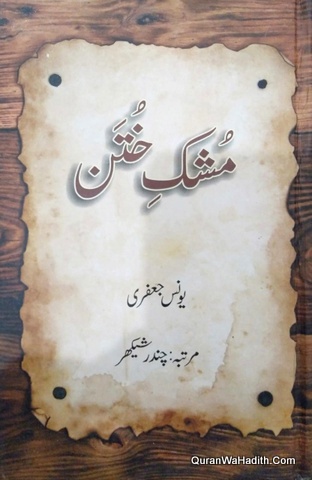 مُشکِ خُتَن
یونس جعفری
مرتبہ: چندر شیکھر
QuranWaHadith.Com